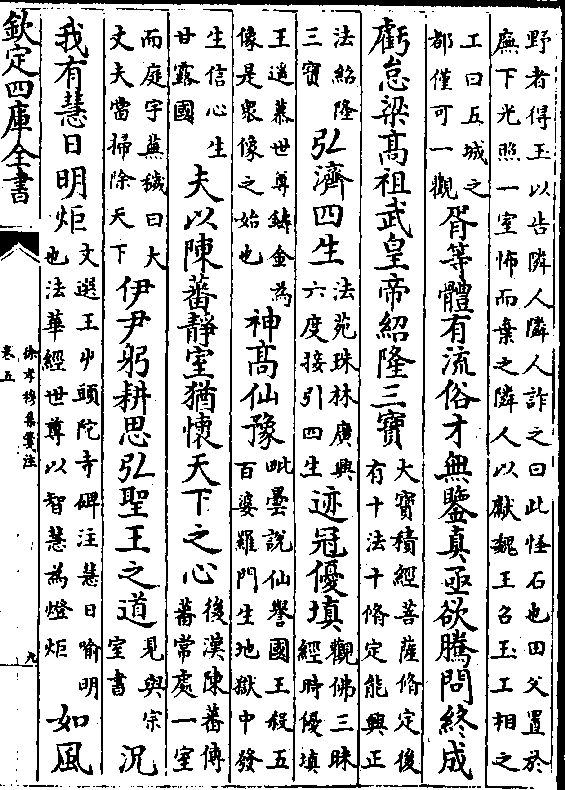 野者得玉以告隣人隣人詐之曰此怪石也田父置於
廡下光照一室怖而棄之隣人以獻魏王召玉工相之
工曰五城之
都僅可一觀
胥等體有流俗才無鑒真亟欲騰問終成
虧怠梁髙祖武皇帝紹隆三寶
大寶積經菩薩脩定後
有十法十脩定能興正
法紹隆
三寶
弘濟四生
法苑珠林廣興
六度接引四生
迹冠優填
觀佛三昧
經時優填
王遥慕世尊鑄金為
像是衆像之始也
神髙仙豫
毗曇說仙譽國王殺五
百婆羅門生地獄中發
生信心生
甘露國
夫以陳蕃靜室猶懷天下之心
後漢陳蕃傳
蕃常處一室
而庭宇蕪穢曰大
丈夫當掃除天下
伊尹躬耕思弘聖王之道
見與宗
室書
况
我有慧日明炬
文選王屮頭陀寺碑注慧日喻明
也法華經世尊以智慧為燈炬
如風
欽定四庫全書
徐孝穆集箋注
卷五
九